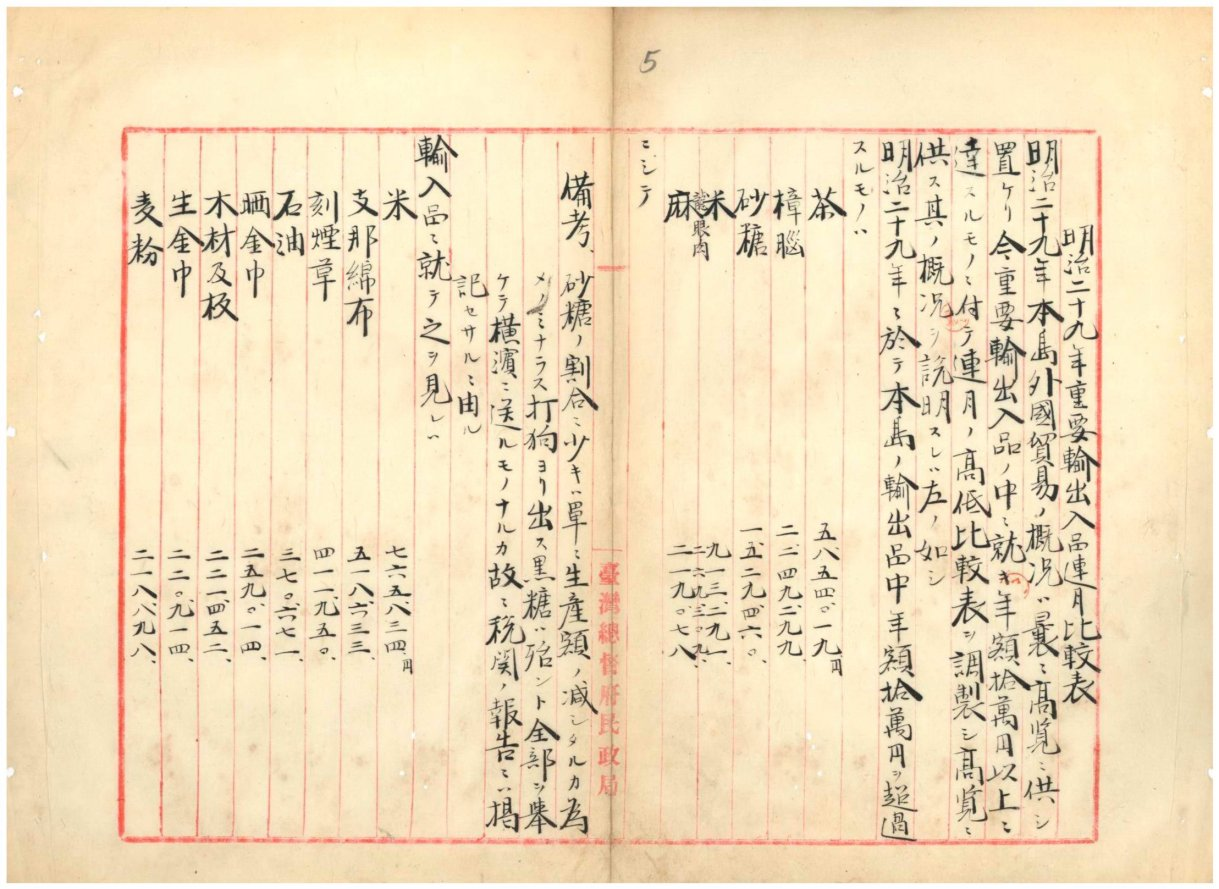 5
明治二十九年重要輸出入品連月比較表
明治二十九年本島外國貿易ノ概況ハ曩ニ高覧ニ供シ
置ケリ今重要輸出入品ノ中ニ就キ年額拾萬円以上ニ
達スルモノニ付テ連月ノ高低比較表ヲ調製シ高覧ニ
供ス其ノ概況ヲ説明スレハ左ノ如シ
明治二十九年ニ於テ本島ノ輸出品中年額拾萬円ヲ超過
スルモノハ
茶 五、八五四、〇一九円
樟腦 二、二四九、二九九
砂糖 一、五二九、四六〇、
米 九一三、二九一、
龍眼肉 二六九、三〇九、
麻 二一九、〇七八
ニシテ
臺灣總督府民政局
備考、砂糖ノ割合ニ少キハ單ニ生産額ノ減シタルカ為
メノミナラス打狗ヨリ出ス黒糖ハ殆ント全部ヲ舉
ケテ横濱ニ送ルモノナルカ故ニ税関ノ報告ニハ掲
記セサルニ由ル
輸入品ニ就テ之ヲ見レハ
米 七六五、八三四円
支那綿布 五一八、六三三、
刻煙草 四一一、九五〇、
石油 三七〇、六七一、
晒金巾 二五九、〇一四、
木材及板 二二一、四五二、
生金巾 二二〇、九一四、
麦粉 二一八、八九八、